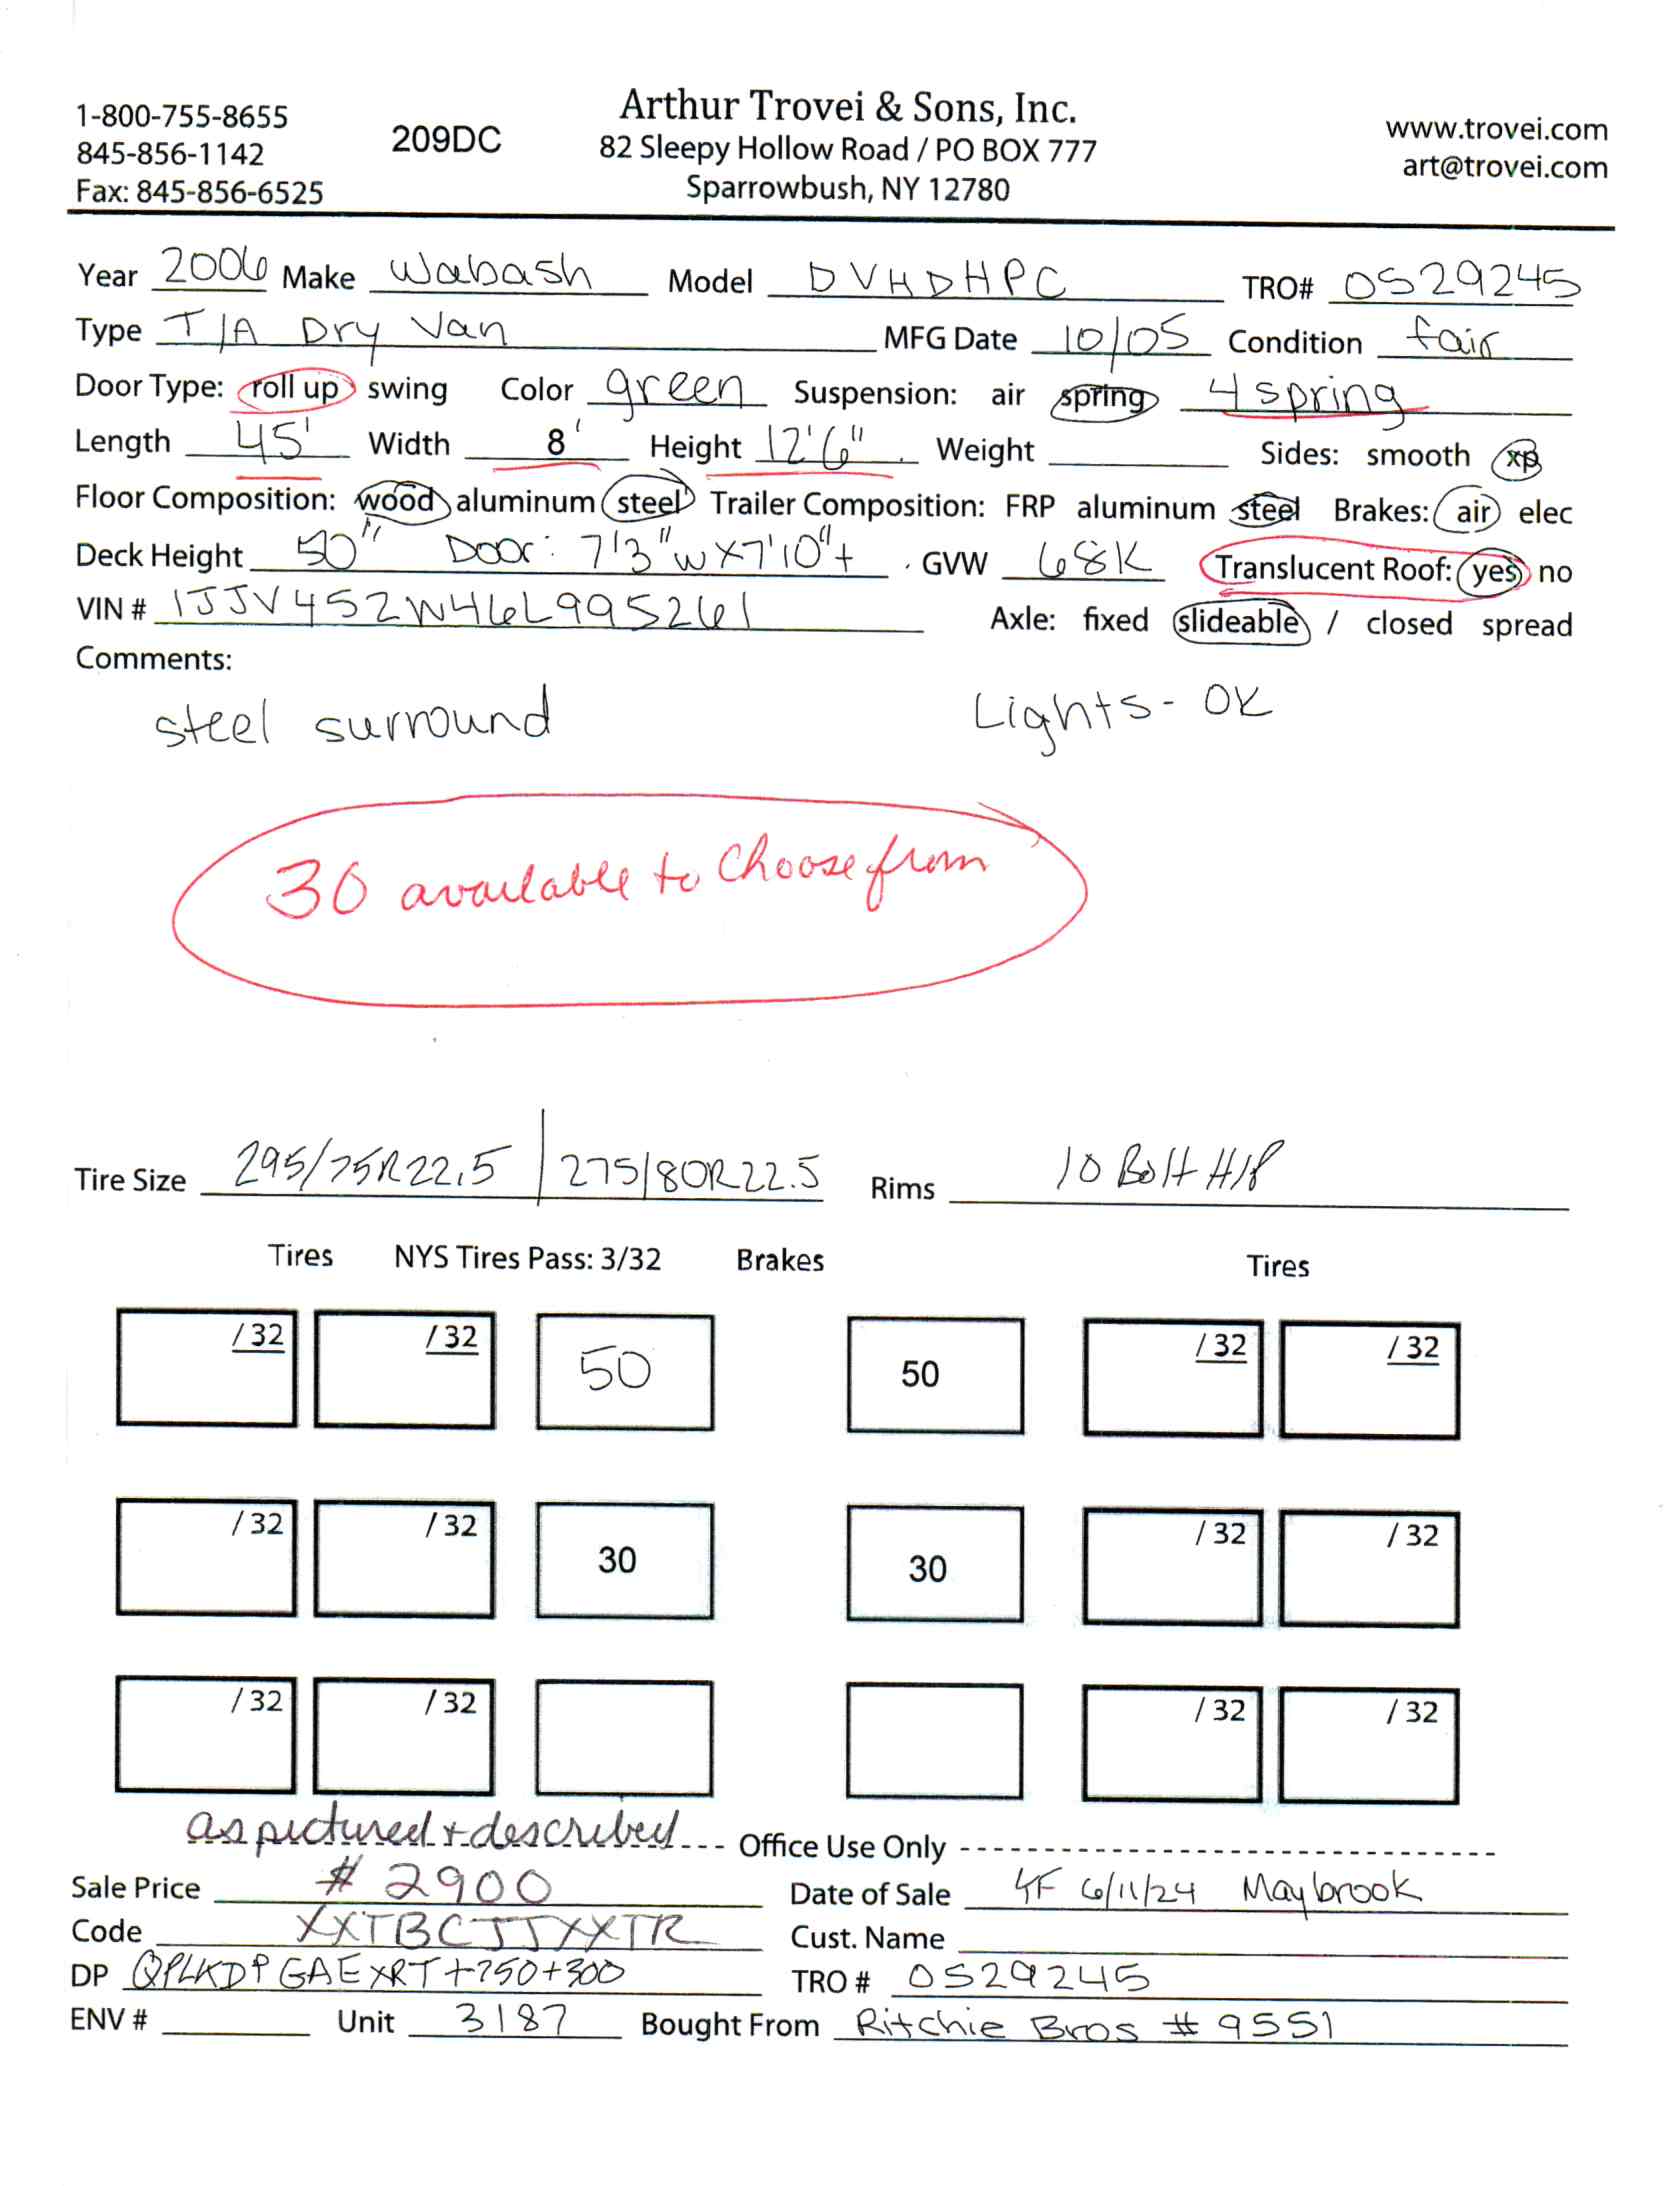 1-800-755-8655
845-856-1142
Fax: 845-856-6525
209DC
Arthur Trovei & Sons, Inc.
82 Sleepy Hollow Road / PO BOX 777
Sparrowbush, NY 12780
www.trovei.com
art@trovei.com
Year 2006 Make Wabash Model DVHDHPC TRO# 0529245
Type T/A Dry Van MFG Date 10/05 Condition fair
Door Type: roll up swing Color green Suspension: air spring 4 spring
Length 45' Width 8' Height 12'6" Weight Sides: smooth xp
Floor Composition: wood aluminum steel Trailer Composition: FRP aluminum steel Brakes: air elec
Deck Height 50" Door: 7'3"w x 7'10"+ GVW 68K Translucent Roof: yes no
VIN # 1JJV452W46L995261 Axle: fixed slideable / closed spread
Comments:
steel surround Lights- OK
30 available to choose from
Tire Size 295/75R22.5 | 275/80R22.5 Rims 10 Bolt H/P
Tires NYS Tires Pass: 3/32 Brakes Tires
/32 /32 50 50 /32 /32
/32 /32 30 30 /32 /32
/32 /32 /32 /32
as pictured + described --- Office Use Only
Sale Price # 2900 Date of Sale 6/11/24 Maybrook
Code XXTBCJJXXTR Cust. Name
DP QPLKDPGAEXRT+750+300 TRO # 0529245
ENV # Unit 3187 Bought From Ritchie Bros # 9551